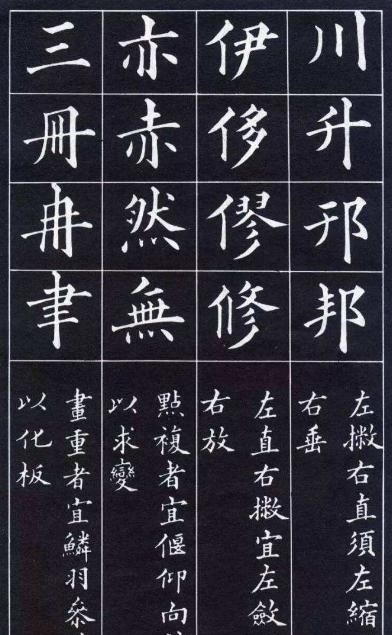 川升邗邦
左撇右直須左縮
右垂
伊侈僇修
左直右撇宜左斂
右放
亦赤然無
點複者宜偃仰向
以求變
三冊冉聿
畫重者宜鱗羽參
以化板